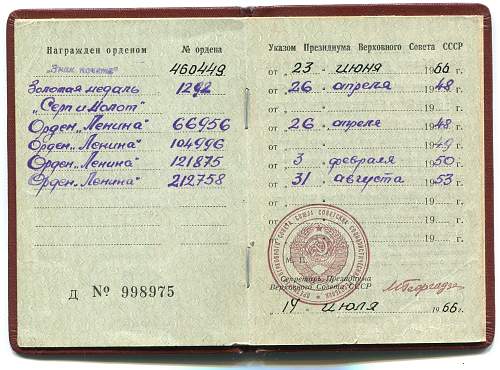 Награжден орденом № ордена
„Знак почета“ 460449
Золотая медаль 1292
„Серп и Молот“
Орден „Ленина“ 66956
Орден „Ленина“ 104996
Орден „Ленина“ 121875
Орден „Ленина“ 212758
Д № 998975
Указом Президиума Верховного Совета СССР
от 23 июня 1966 г.
от 26 апреля 1948 г.
от 19 г.
от 26 апреля 1948 г.
от 1949 г.
от 3 февраля 1950 г.
от 31 августа 1953 г.
от 19 г.
от 19 г.
19 г.
М. П.
Секретарь Президиума
Верховного Совета СССР
14 июля 1966 г.